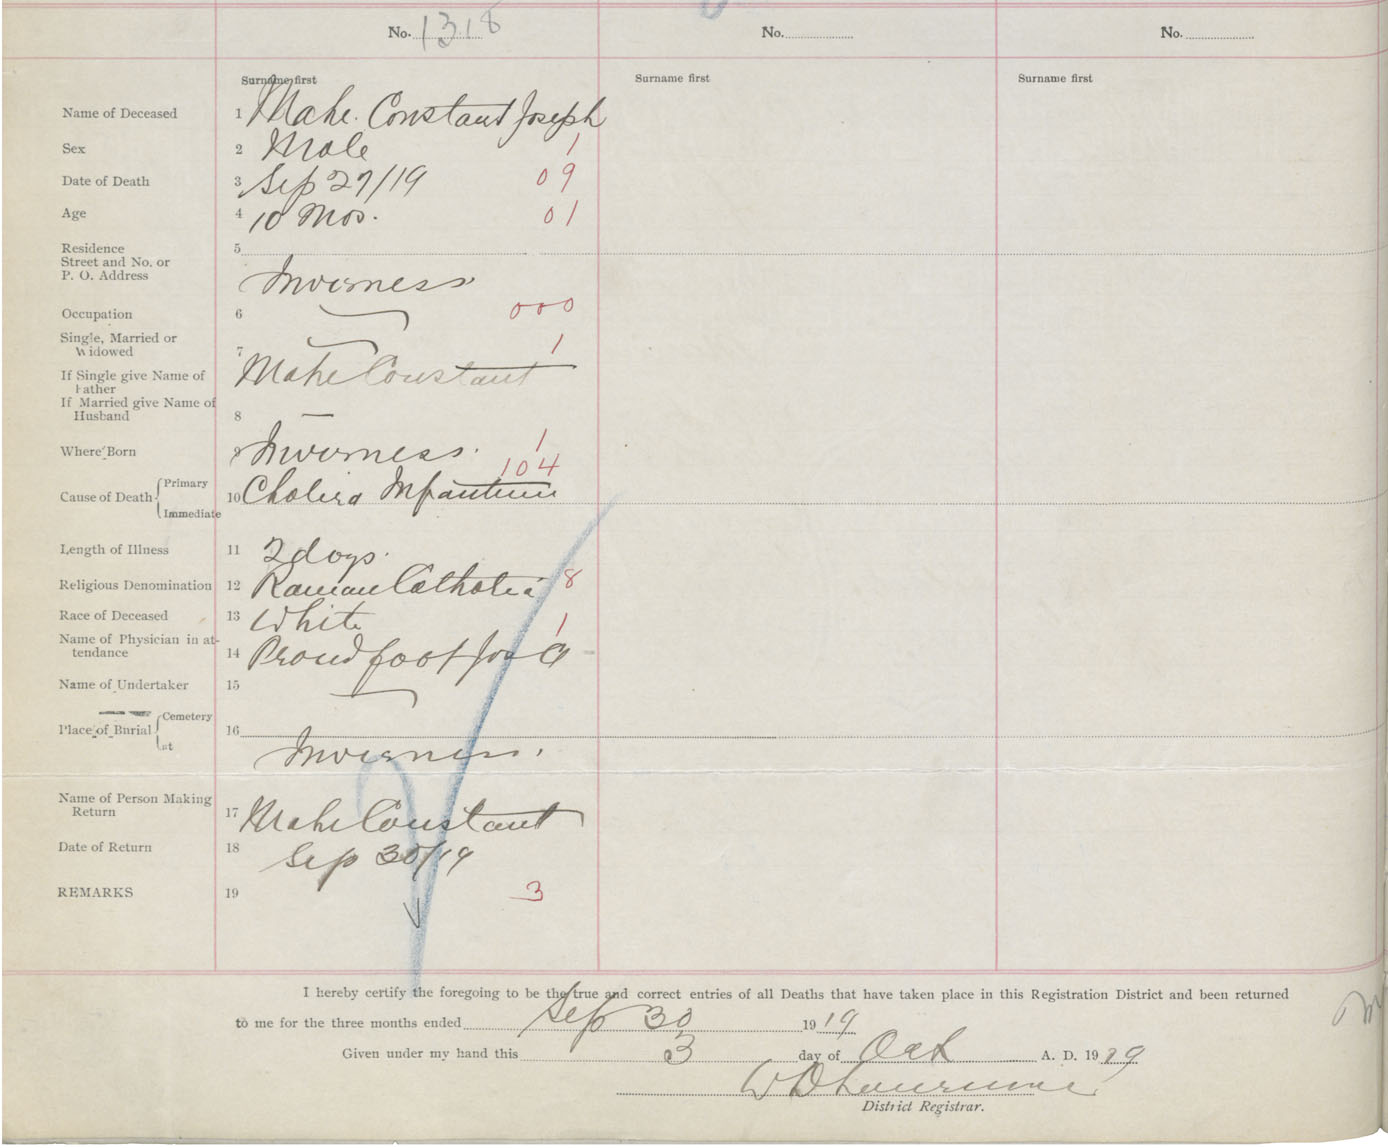 No. 1318 No. No.
Surname first Surname first Surname first
Name of Deceased 1 Mahe. Constant Joseph
Sex 2 Male 1
Date of Death 3 Sep 27/19 09
Age 4 10 Mos. 01
Residence 5
Street and No. or
P. O. Address Inverness
Occupation 6 000
Single, Married or
Widowed 7 1
If Single give Name of Mahe Constant
Father
If Married give Name of
Husband 8 —
Where Born 9 Inverness. 1
104
Cause of Death Primary 10 Cholera Infantum
Immediate
Length of Illness 11 2 days.
Religious Denomination 12 Roman Catholic 8
Race of Deceased 13 White 1
Name of Physician in at-
tendance 14 Proudfoot Jos A
Name of Undertaker 15
Place of Burial Cemetery 16
at Inverness.
Name of Person Making
Return 17 Mahe Constant
Date of Return 18 Sep 30/19
REMARKS 19 3
I hereby certify the foregoing to be the true and correct entries of all Deaths that have taken place in this Registration District and been returned
to me for the three months ended Sep 30 1919
Given under my hand this 3 day of Oct A. D. 1919
W D
District Registrar.